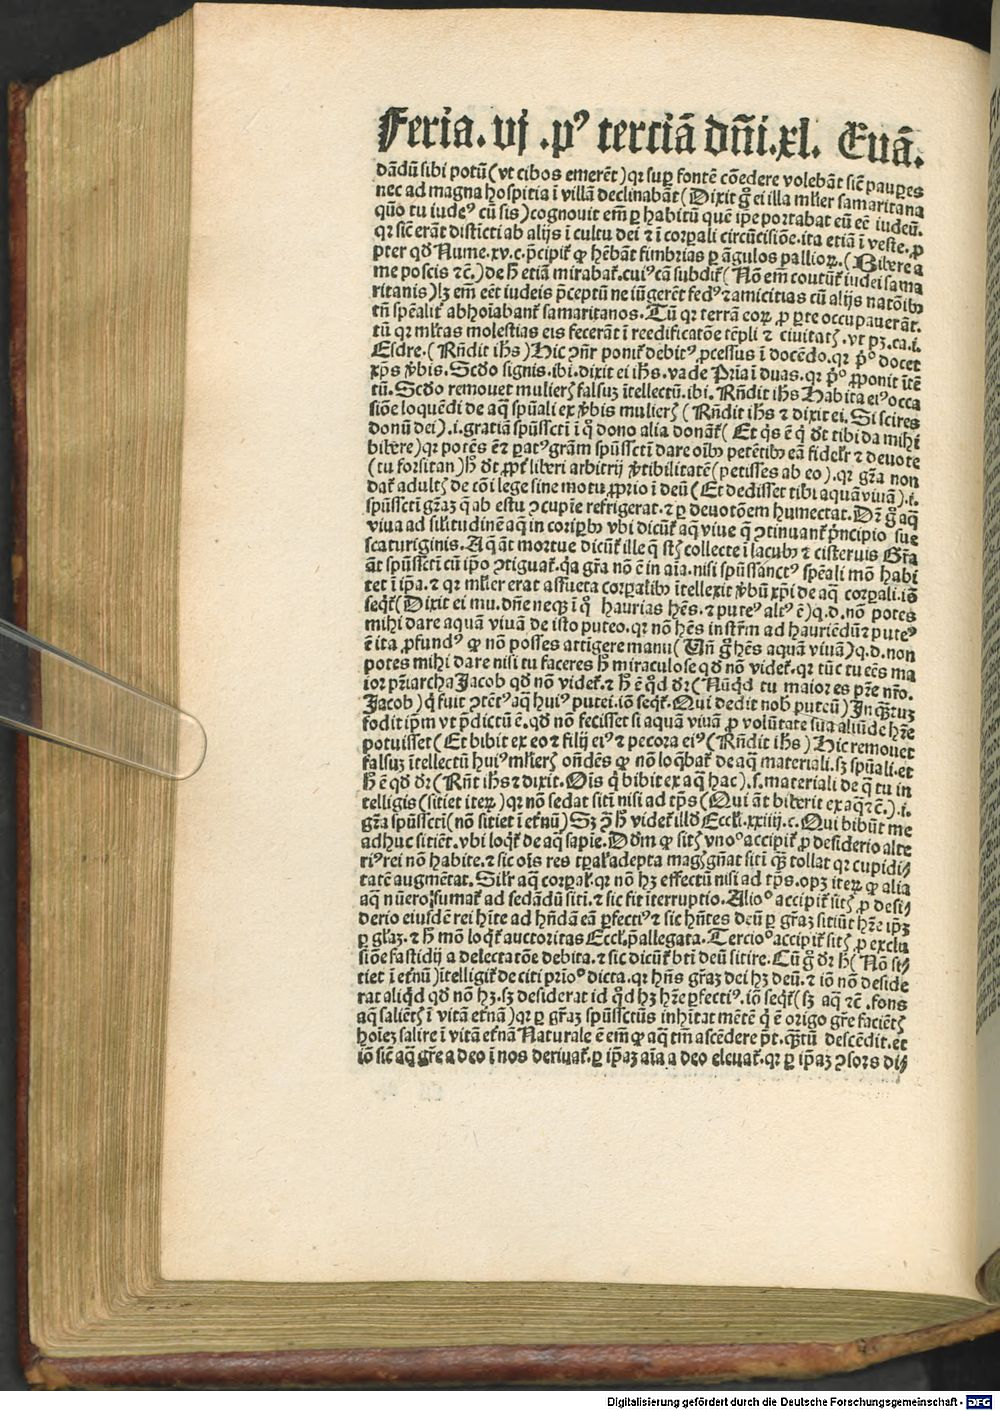 Feria. vj .pꝰ terciā dn̄i.xl. Euā.
dādū sibi potū (vt cibos emerēt) qꝛ suꝑ fontē cōedere volebāt sic̄ pauꝑes
nec ad magna hospitia ī villā declinabāt (Dixit gͦ ei illa mĺier samaritana
quō tu iudeꝰ cū sis) cognouit em̄ ꝑ habitū quē ip̄e portabat eū eē iudeū.
qꝛ sic̄ erāt distīcti ab alijs ī cultu dei ⁊ ī corꝑali circūcisiōe. ita etiā ī veste. ꝓ
pter qd̄ Nume.xv.c. p̄cipit̄ ꝙ hēbāt fimbrias ꝑ āgulos pallioꝝ. (Bibere a
me poscis ⁊c̄.) de h̄ etiā mirabat̄. cuiꝰ cā subdit̄ (Nō em̄ coutūt̄ iudei sama
ritanis) lꝫ em̄ eēt iudeis p̄ceptū ne iūgerēt fedꝰ ⁊ amicitias cū alijs natōibꝰ
tn̄ sp̄ealit̄ abhoīabant̄ samaritanos. Tū qꝛ terrā eoꝝ ꝓ ꝑte occupauerāt.
tū qꝛ mĺtas molestias eis fecerāt ī reedificatōe tēpli ⁊ ciuitatꝭ. vt pꝫ .ca.i.
Esdre. (Rn̄dit ih̄s) Hic ꝯn̄r ponit̄ debitꝰ ꝓcessus ī docēdo. qꝛ pͦ docet
xp̄s v̄bis. Scd̄o signis. ibi. dixit ei ih̄s. vade Pria ī duas. qꝛ pͦ ꝓponit ītē
tū. Scd̄o remouet mulierꝭ falsuꝫ ītellectū. ibi. Rn̄dit ih̄s Habita eiꝰ occa
siōe loquēdi de aq̄ spūali ex v̄bis mulierꝭ (Rn̄dit ih̄s ⁊ dixit ei. Si scires
donū dei) .i. gratiā spūsscti ī q̄ dono alia donāt̄ (Et q̇s ē q̇ dt̄ tibi da mihi
bibere) qꝛ potēs ē ⁊ ꝑatꝰ grām spūsscti dare oībꝰ petētibꝰ eā fidelr̄ ⁊ deuote
(tu forsitan) h̄ dt̄ ꝓpt̄ liberi arbitrij v̄tibilitatē (petisses ab eo) .qꝛ gr̄a non
dat̄ adultꝭ de cōi lege sine motu ꝓprio ī deū (Et dedisset tibi aquā viuā) .i.
spūsscti gr̄aꝫ q̄ ab estu ꝯcupīe refrigerat. ⁊ ꝑ deuotōem humectat. Dr̄ gͦ aq̄
viua ad sil̄itudinē aq̄ in corꝑibꝰ vbi dicūt̄ aq̄ viue q̄ ꝯtinuant̄ p̄ncipio sue
scaturiginis. Aq̄ āt mortue dicūt̄ ille q̄ st̄ꝭ collecte ī lacubꝰ ⁊ cisternis Gr̄a
āt spūsscti cū ip̄o ꝯtiguat̄. q̇a gr̄a nō ē in aīa. nisi spūssanctꝰ sp̄eali mō habi
tet ī ip̄a. ⁊ qꝛ mĺier erat assueta corꝑalibꝰ ītellexit v̄bū xp̄i de aq̄ corꝑali. iō
seqt̄ (Dixit ei mu. dn̄e neqꝫ ī qͦ haurias hēs. ⁊ puteꝰ altꝰ ē) q.d. nō potes
mihi dare aquā viuā de isto puteo. qꝛ nō hēs instr̄m ad hauriēdū ⁊ puteꝰ
ē ita ꝓfundꝰ ꝙ nō posses attīgere manu (Vn̄ gͦ hēs aquā viuā) q.d. non
potes mihi dare nisi tu faceres h̄ miraculose qd̄ nō videt̄. qꝛ tūc tu eēs ma
ior pr̄iarcha Jacob qd̄ nō videt̄. ⁊ h̄ ē qd̄ dr̄ (Nūqd̄ tu maior es pr̄e nr̄o.
Jacob) q̇ fuit ꝯtētꝰ aq̄ huiꝰ putei. iō seqt̄. Qui dedit nob̄ puteū) Jn q̄rtuꝫ
fodit ip̄m vt p̄dictū ē. qd̄ nō fecisset si aquā viuā ꝓ volūtate sua aliūde hr̄e
potuisset (Et bibit ex eo ⁊ filij eiꝰ ⁊ pecora eiꝰ (Rn̄dit ih̄s) Hic remouet
falsuꝫ ītellectū huiꝰ mĺierꝭ on̄dēs ꝙ nō loq̄bat̄ de aq̄ materiali. sꝫ spūali. et
h̄ ē qd̄ dr̄ (Rn̄t ih̄s ⁊ dixit. Oīs q̇ bibit ex aq̄ hac) .s. materiali de q̄ tu in
telligis (sitiet iteꝝ) qꝛ nō sedat sitī nisi ad tp̄s (Qui āt biberit ex aq̄ ⁊c̄.) .i.
gr̄a spūsscti (nō sitiet ī et̄nū) Sꝫ ꝯ h̄ videt̄ illd̄ Eccĺi.xxiiij.c. Qui bibūt me
adhuc sitiēt. vbi loqt̄ de aq̄ sapīe. Dd̄m ꝙ sitꝭ vnoͦ accipit̄ ꝓ desiderio alte
riꝰ rei nō habite. ⁊ sic oīs res tꝑal̄ adepta magꝭ gn̄at sitī q̄ꝫ tollat qꝛ cupidi
tatē augmētat. Sil̄r aq̄ corꝑal̄. qꝛ nō hꝫ effectū nisi ad tp̄s. opꝫ iteꝝ ꝙ alia
aq̄ nūero sumat̄ ad sedādū sitī. ⁊ sic fit iterruptio. Alioͦ accipit̄ sitꝭ ꝓ desi
derio eiusdē rei hīte ad hn̄dā eā ꝑfectiꝰ ⁊ sic hn̄tes deū ꝑ gr̄aꝫ sitiūt hr̄e ip̄ꝫ
ꝑ gĺaꝫ. ⁊ h̄ mō loqt̄ auctoritas Eccĺ. p̄allegata. Tercioͦ accipit̄ sitꝭ ꝓ exclu
siōe fastidij a delectatōe debita. ⁊ sic dicūt̄ bt̄i deū sitire. Cū gͦ dr̄ h̄ (Nō si
tiet ī et̄nū) ītelligit̄ de citi prīoͦ dicta. qꝛ hn̄s gr̄aꝫ dei hꝫ deū. ⁊ iō nō deside
rat aliqd̄ qd̄ nō hꝫ. sꝫ desiderat id qd̄ hꝫ hr̄e ꝑfectiꝰ. iō seqt̄ (sꝫ aq̄ ⁊c̄. fons
aq̄ saliētꝭ ī vitā et̄nā) qꝛ ꝑ gr̄aꝫ spūsctūs inhītat mētē q̇ ē origo gr̄e faciētꝭ
hoīeꝫ salire ī vitā et̄nā Naturale ē em̄ ꝙ aq̄ tm̄ ascēdere p̄t. q̄ꝫtū descēdit. et
iō sic̄ aq̄ gr̄e a deo ī nos deriuat̄. ꝑ ip̄aꝫ aīa a deo eleuat̄. qꝛ ꝑ ip̄aꝫ ꝯsors di